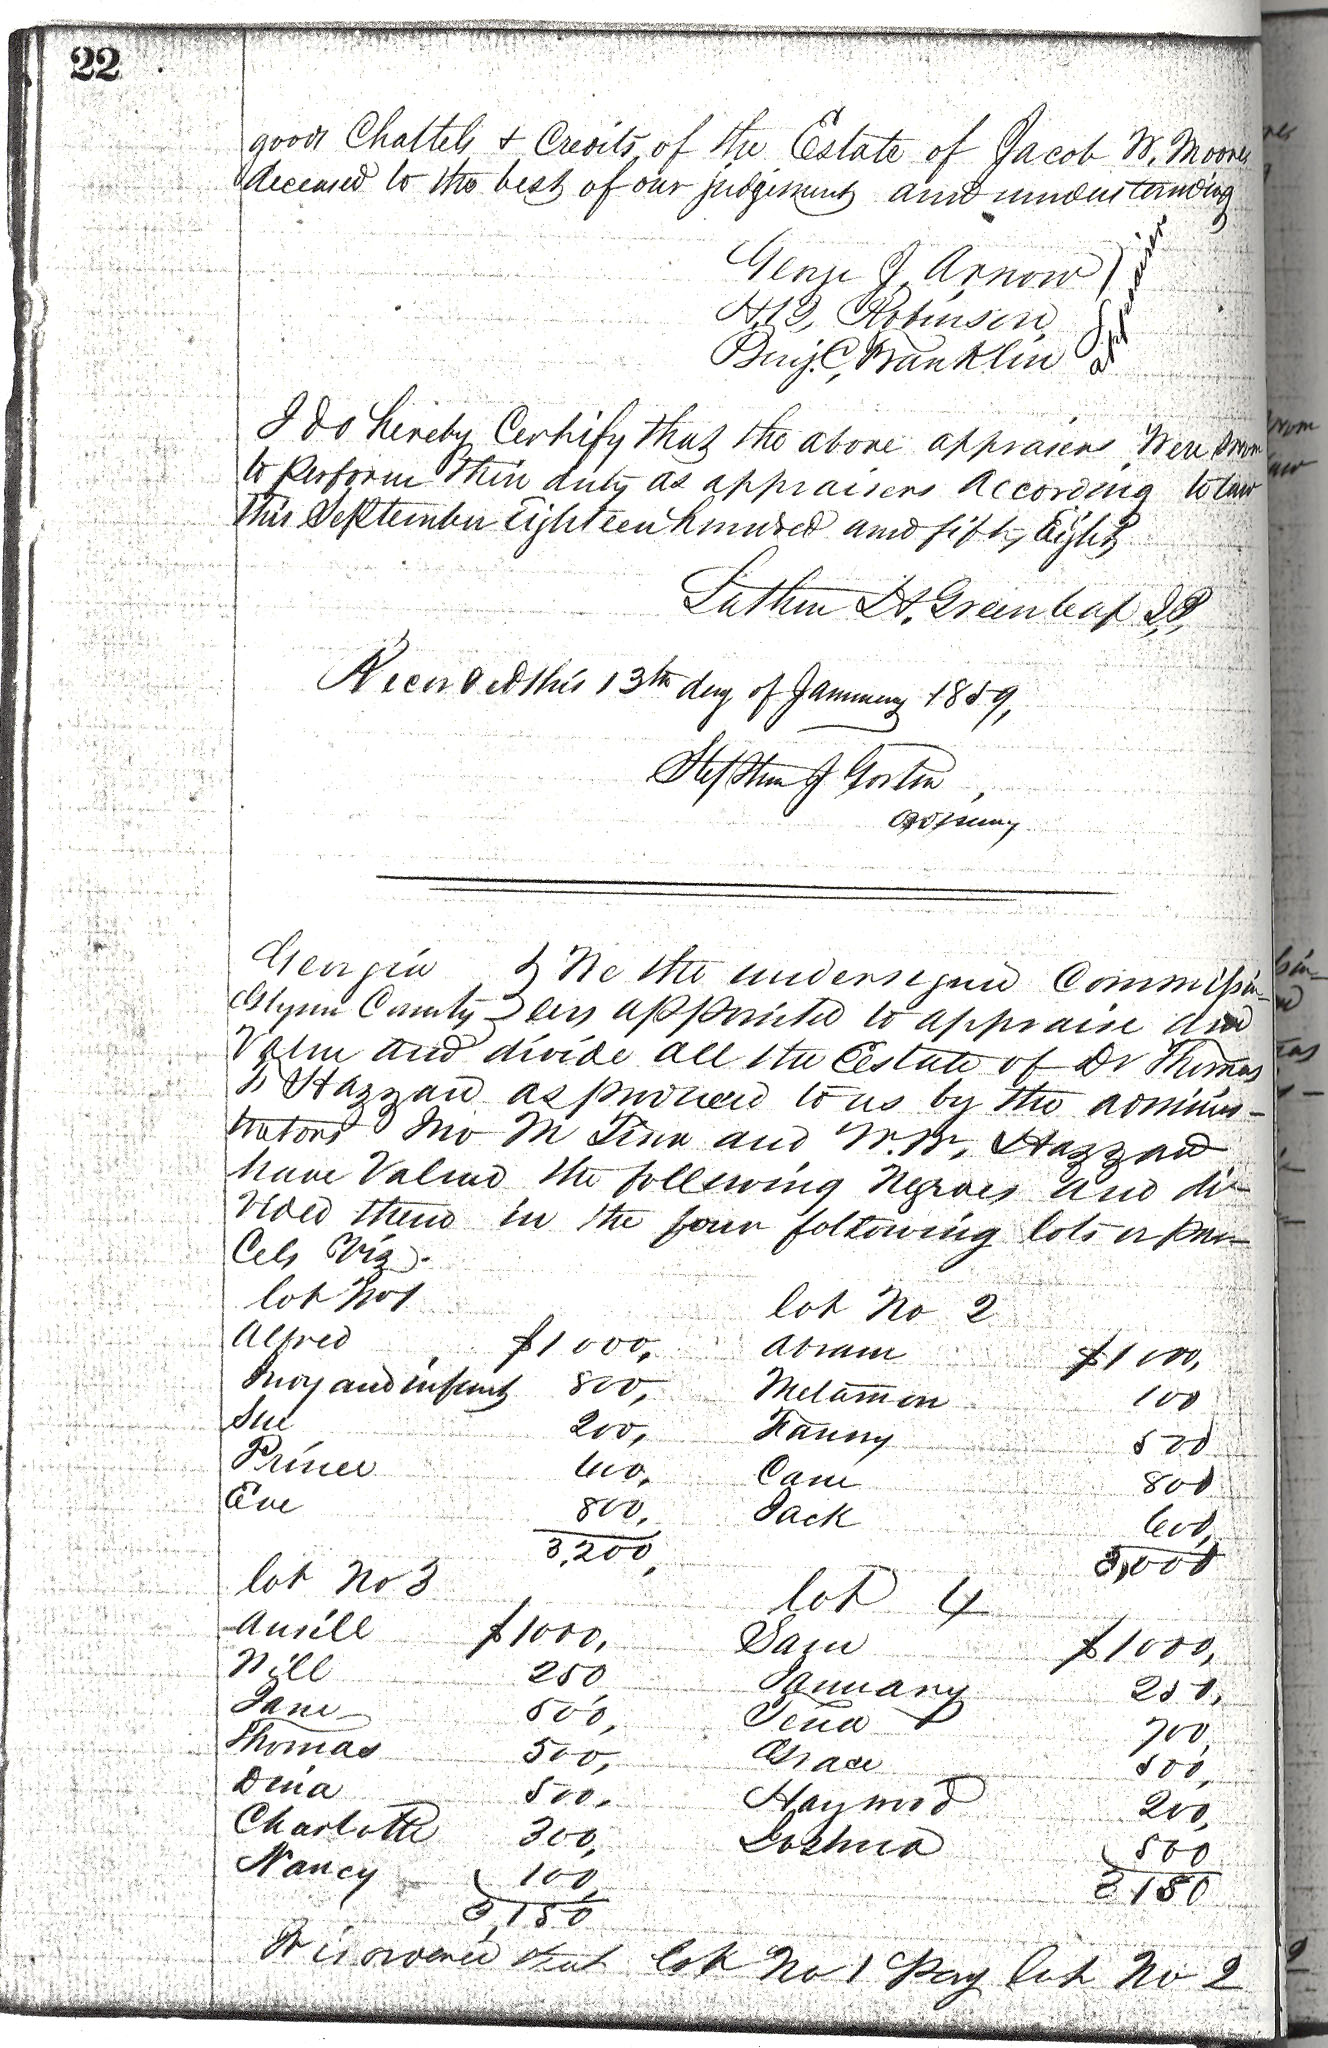 22
goods Chattels & Credits of the Estate of Jacob W. Moore
deceased to the best of our judgement and understanding
George J. Arnow
H. B. Robinson
Benj. C. Franklin
appraisers
I do hereby Certify that the above appraisers Were sworn
to perform their duty as appraisers According to law
this September Eighteen hundred and fifty Eight
Luther H. Greenleaf J.P.
Recorded this 13th day of January 1859,
Stephen J Gorton
ordinary
Georgia } We the undersigned Commission-
Glynn County } ers appointed to appraise and
Value and divide all the Estate of Dr Thomas
Hazzard as produced to us by the adminis-
trators Jno M Tison and W. W. Hazzard
have Valued the following Negroes and di-
vided them in the four following lots or par-
Cels Viz.
lot No 1 lot No 2
Alfred $1000, Abram $1000,
and infant 800, 100
Sue 200, Fanny 500
Prince 400, 800
Eve 800, Jack 600,
3,200, 3,000
lot No 3 lot 4
Ansill $1000, Sam $1000,
Will 250 January 250,
Jane 500, Tena 700,
Thomas 500, Grace 500,
Dina 500, Haywood 200,
Charlotte 300, Joshua 500
Nancy 100, 3,150
3,150
It is ordered that lot No 1 Pay lot No 2